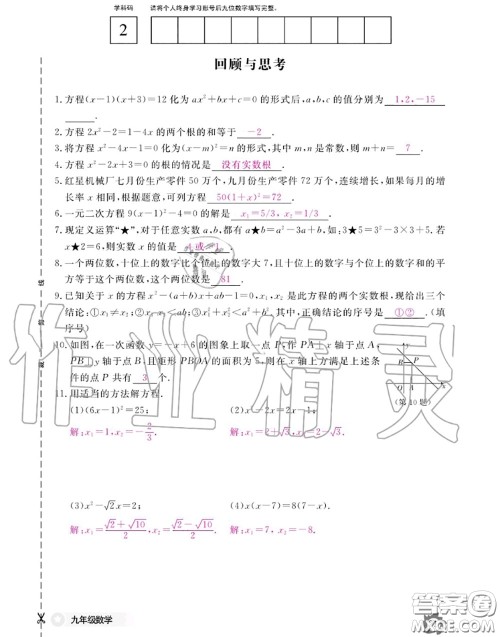 学科码 请将个人终身学习账号后九位数字填写完整。
2
回顾与思考
1.方程(x-1)(x+3)=12化为ax²+bx+c=0的形式后,a,b,c的值分别为 1,2,-15
.
2.方程2x²-2=1-4x的两个根的和等于 -2 .
3.将方程x²-4x-1=0化为(x-m)²=n的形式,其中m,n是常数,则m+n= 7 .
4.方程x²-2x+3=0的根的情况是 没有实数根 .
5.红星机械厂七月份生产零件50万个,九月份生产零件72万个,连续增长,如果每月的增
长率x相同,根据题意,可列方程: 50(1+x)²=72 .
6.一元二次方程9(x-1)²-4=0的解是 x₁=5/3,x₂=1/3 .
7.现定义运算“★”,对于任意实数a,b,都有a★b=a²-3a+b,如:3★5=3²-3×3+5.若
x★2=6,则实数x的值是 4或-1
8.一个两位数,十位上的数字比个位上的数字大7,且十位上的数字与个位上的数字和的平
方等于这个两位数,这个两位数是 81 .
9.已知关于x的方程x²-(a+b)x+ab-1=0,x₁,x₂是此方程的两个实数根,现给出三个
结论:①x₁≠x₂;②x₁x₂<ab;③x₁²+x₂²<a²+b².其中,正确结论的序号是 ①② .(填
序号)
10.如图,在一次函数y=-x+6的图象上取一点P,作PA⊥x轴于点A,
PB⊥y轴于点B,且矩形PBOA的面积为5,则在x轴上方满足上述条
件的点P共有 3 个.
B P
O A
(第10题)
11.用适当的方法解方程.
(1)(6x-1)²=25; (2)x²-2x=2x-1;
解:x₁=1,x₂=-2/3. 解:x₁=2+√3,x₂=2-√3.
(3)x²-√2x=2; (4)x(x-7)=8(7-x).
解:x₁=(√2+√10)/2,x₂=(√2-√10)/2. 解:x₁=7,x₂=-8.
九年级数学
作业精灵
答案圈
MXQE.COM